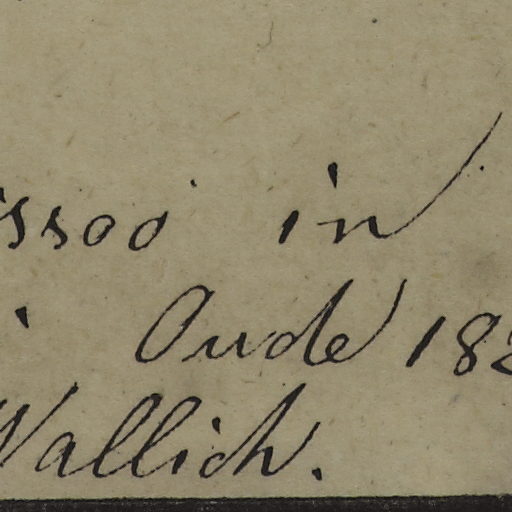 issoo in
Oude 182
Wallich.